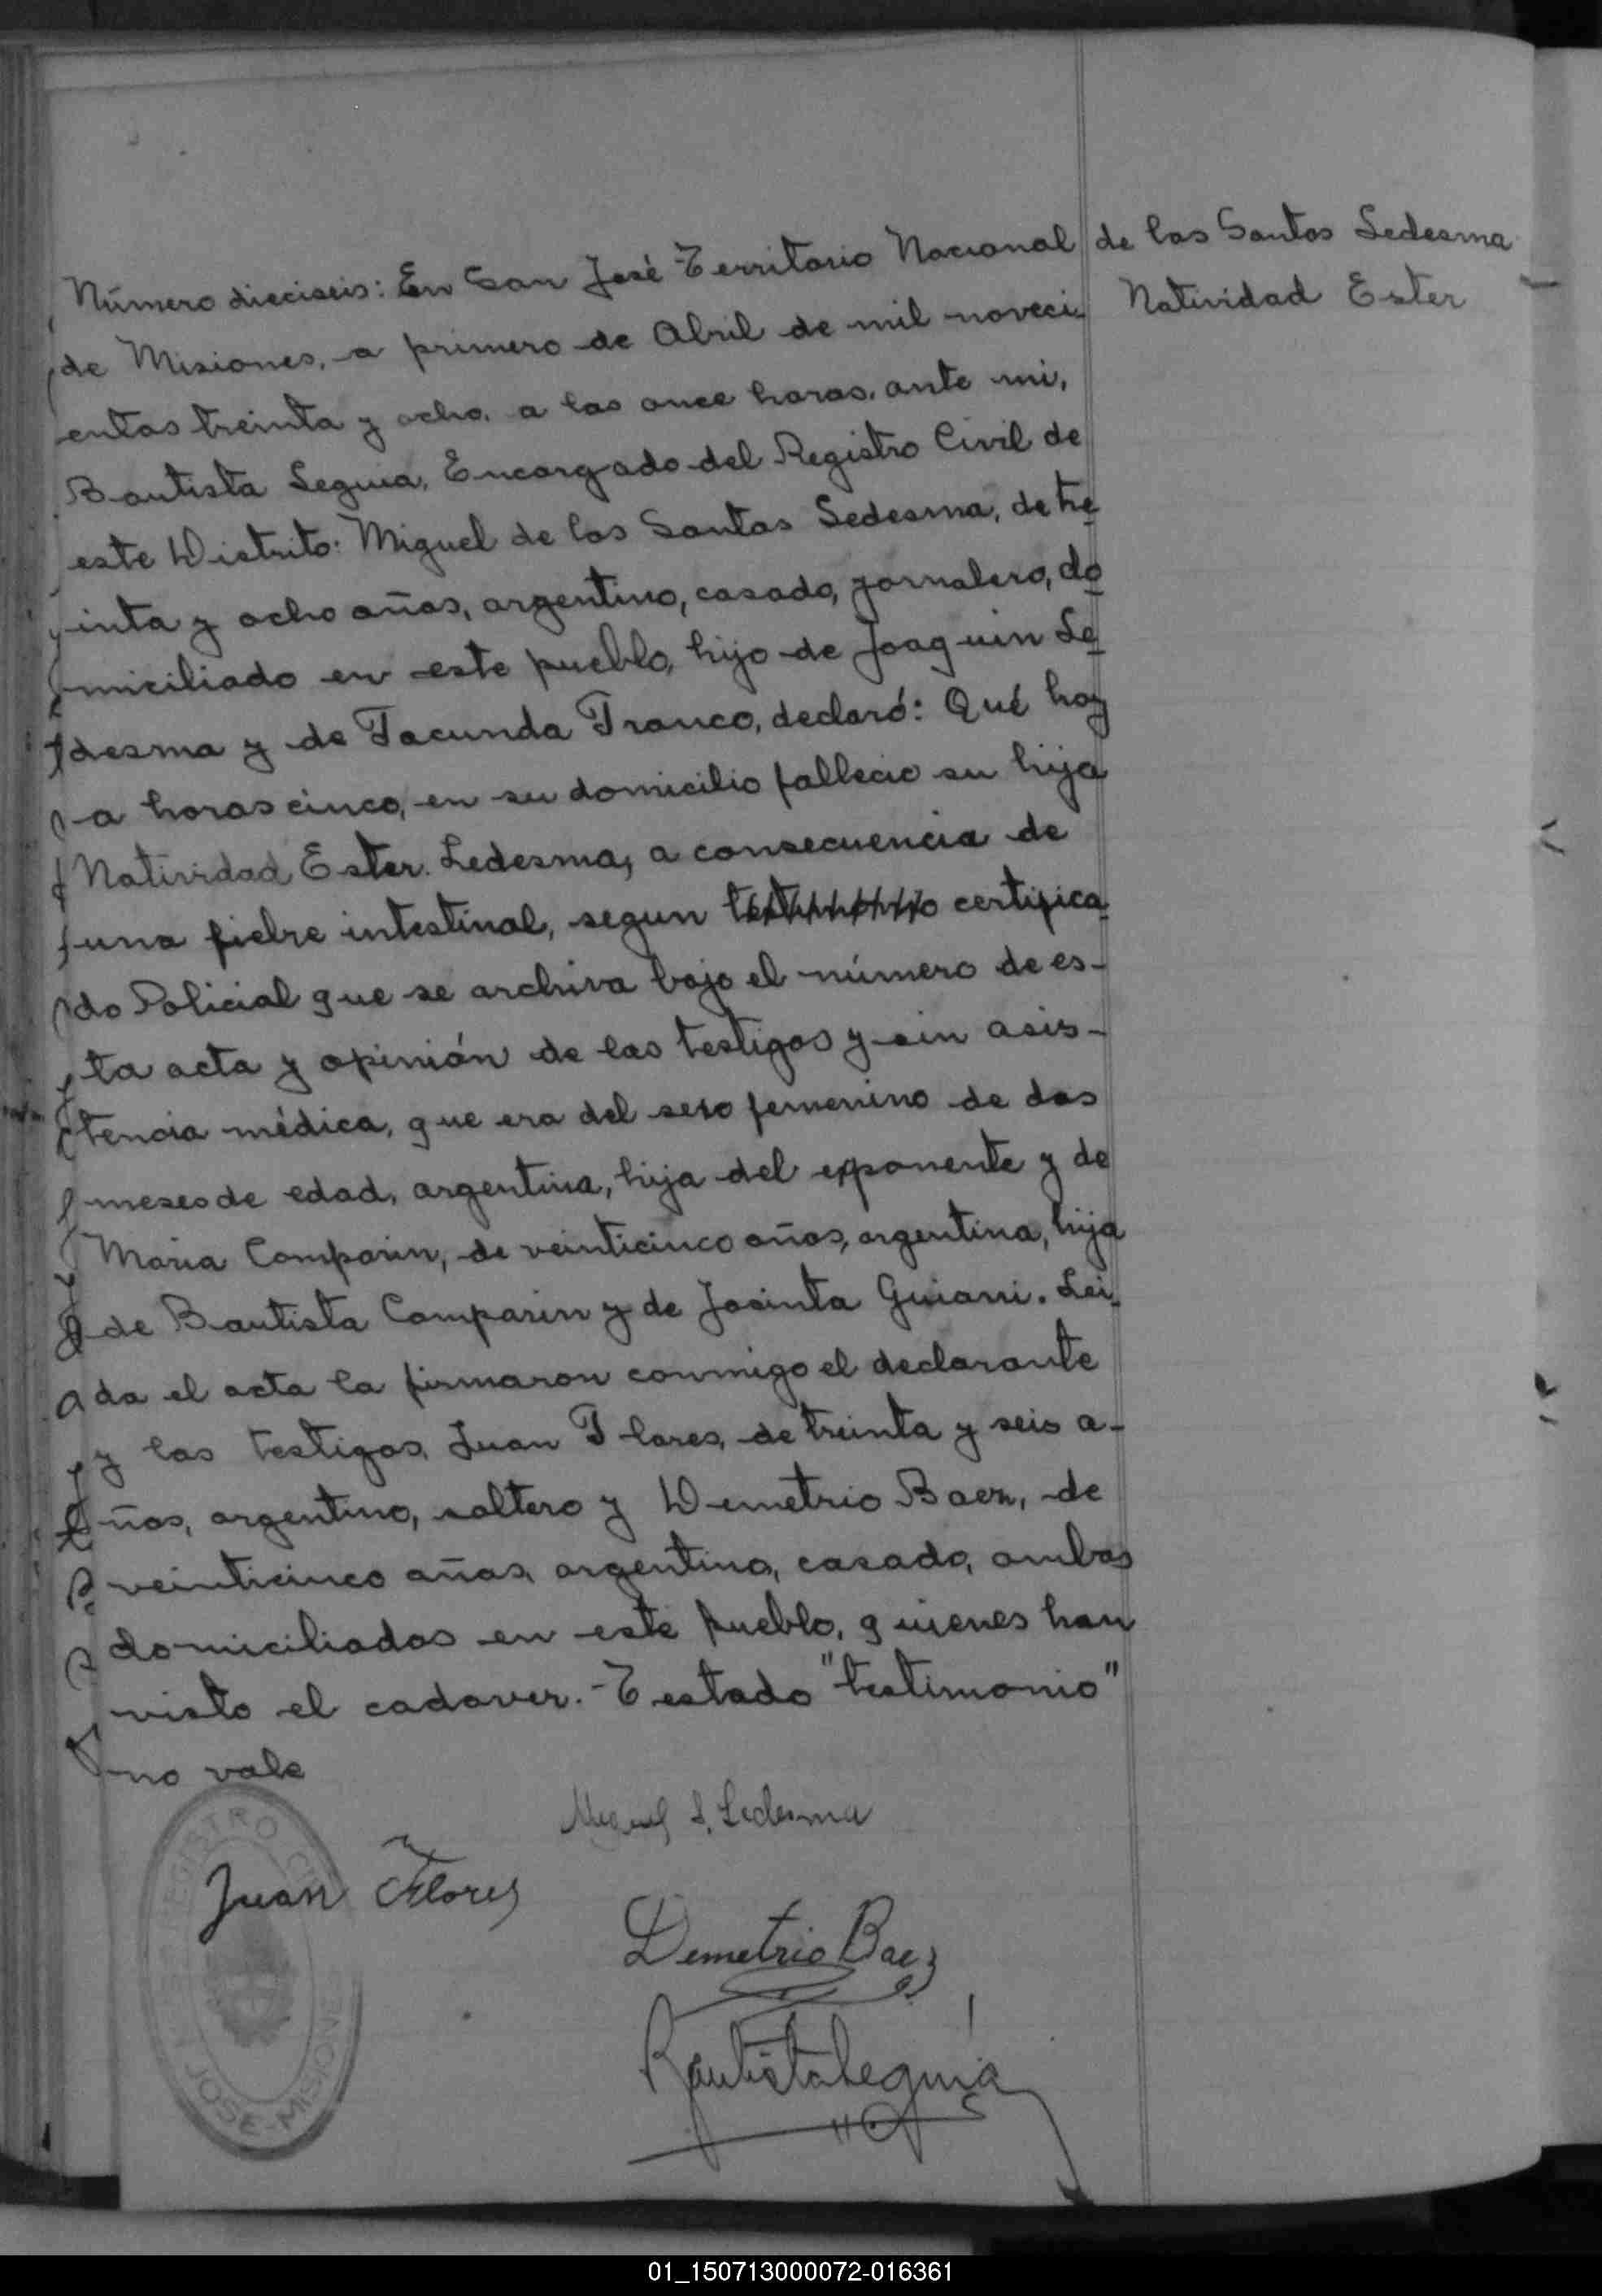 de los Santos Ledesma
Natividad Ester
Número dieciseis: En San José Territorio Nacional
de Misiones, a primero de Abril de mil noveci-
entos treinta y ocho, a las once horas, ante mi,
Bautista Leguia, Encargado del Registro Civil de
este Distrito: Miguel de los Santos Ledesma, de tre
inta y ocho años, argentino, casado, jornalero, do
miciliado en este pueblo, hijo de Joaquin Le
desma y de Facunda Franco, declaró: Qué hoy
a horas cinco, en su domicilio fallecio su hija
Natividad Ester Ledesma, a consecuencia de
una fiebre intestinal, segun testimonio certifica-
do Policial que se archiva bajo el número de es-
ta acta y opinión de los testigos y sin asis-
tencia médica, que era del sexo femenino de dos
meses de edad, argentina, hija del exponente y de
Maria Comparin, de veinticinco años, argentina, hija
de Bautista Comparin y de Jacinta Guiani. Lei-
da el acta la firmaron conmigo el declarante
y los testigos, Juan Flores, de treinta y seis a-
ños, argentino, soltero y Demetrio Baez, de
veinticinco años, argentino, casado, ambos
domiciliados en este pueblo, quienes han
visto el cadaver.- Testado "testimonio"
no vale
Miguel S. Ledesma
Juan Flores
Demetrio Baez
Bautista Leguia
REGISTRO
JOSE-MISIONES
01_150713000072-016361